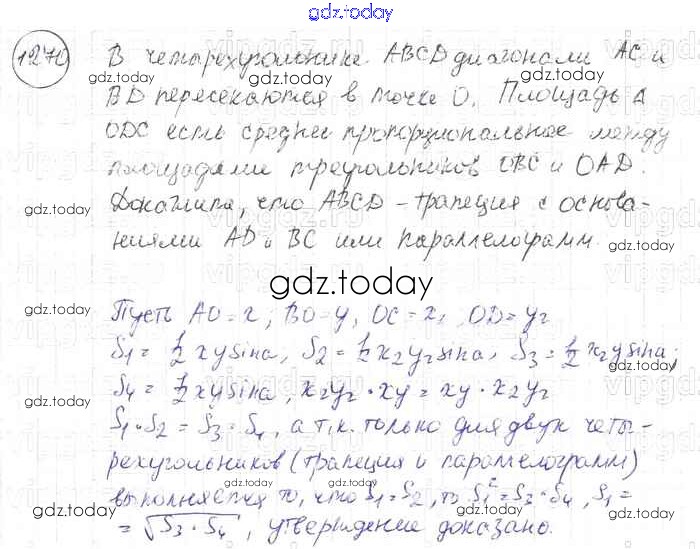 gdz.today
1270
В четырехугольнике ABCD диагонали AC и
BD пересекаются в точке O. Площадь Δ
ODC есть среднее пропорциональное между
площадями треугольников OBC и OAD.
Докажите, что ABCD - трапеция с основа-
ниями AD и BC или параллелограмм.
gdz.today
Пусть AO = x; BO = y, OC = x₂, OD = y₂
S₁ = 1/2 xy sinα, S₂ = 1/2 x₂y₂ sinα, S₃ = 1/2 x₂y sinα;
S₄ = 1/2 xy sinα, x₂y₂ · xy = xy · x₂y₂
S₁ · S₂ = S₃ · S₄, а т.к. только для двух четы-
рехугольников (трапеция и параллелограмм)
выполняется то, что S₁ = S₂, то S₁² = S₃ · S₄, S₁ =
= √S₃ · S₄, утверждение доказано.